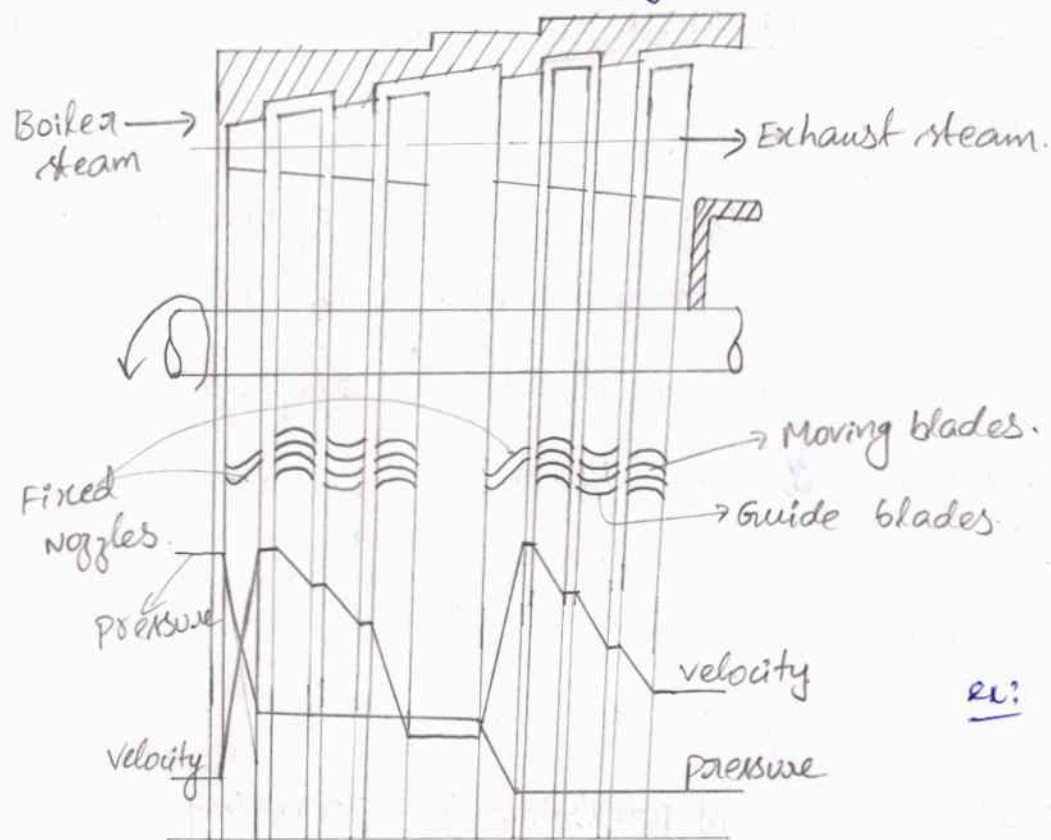 Boiler
steam
Exhaust steam.
Moving blades.
Fixed
Nozzles.
Guide blades
pressure
velocity
ex:
velocity
pressure